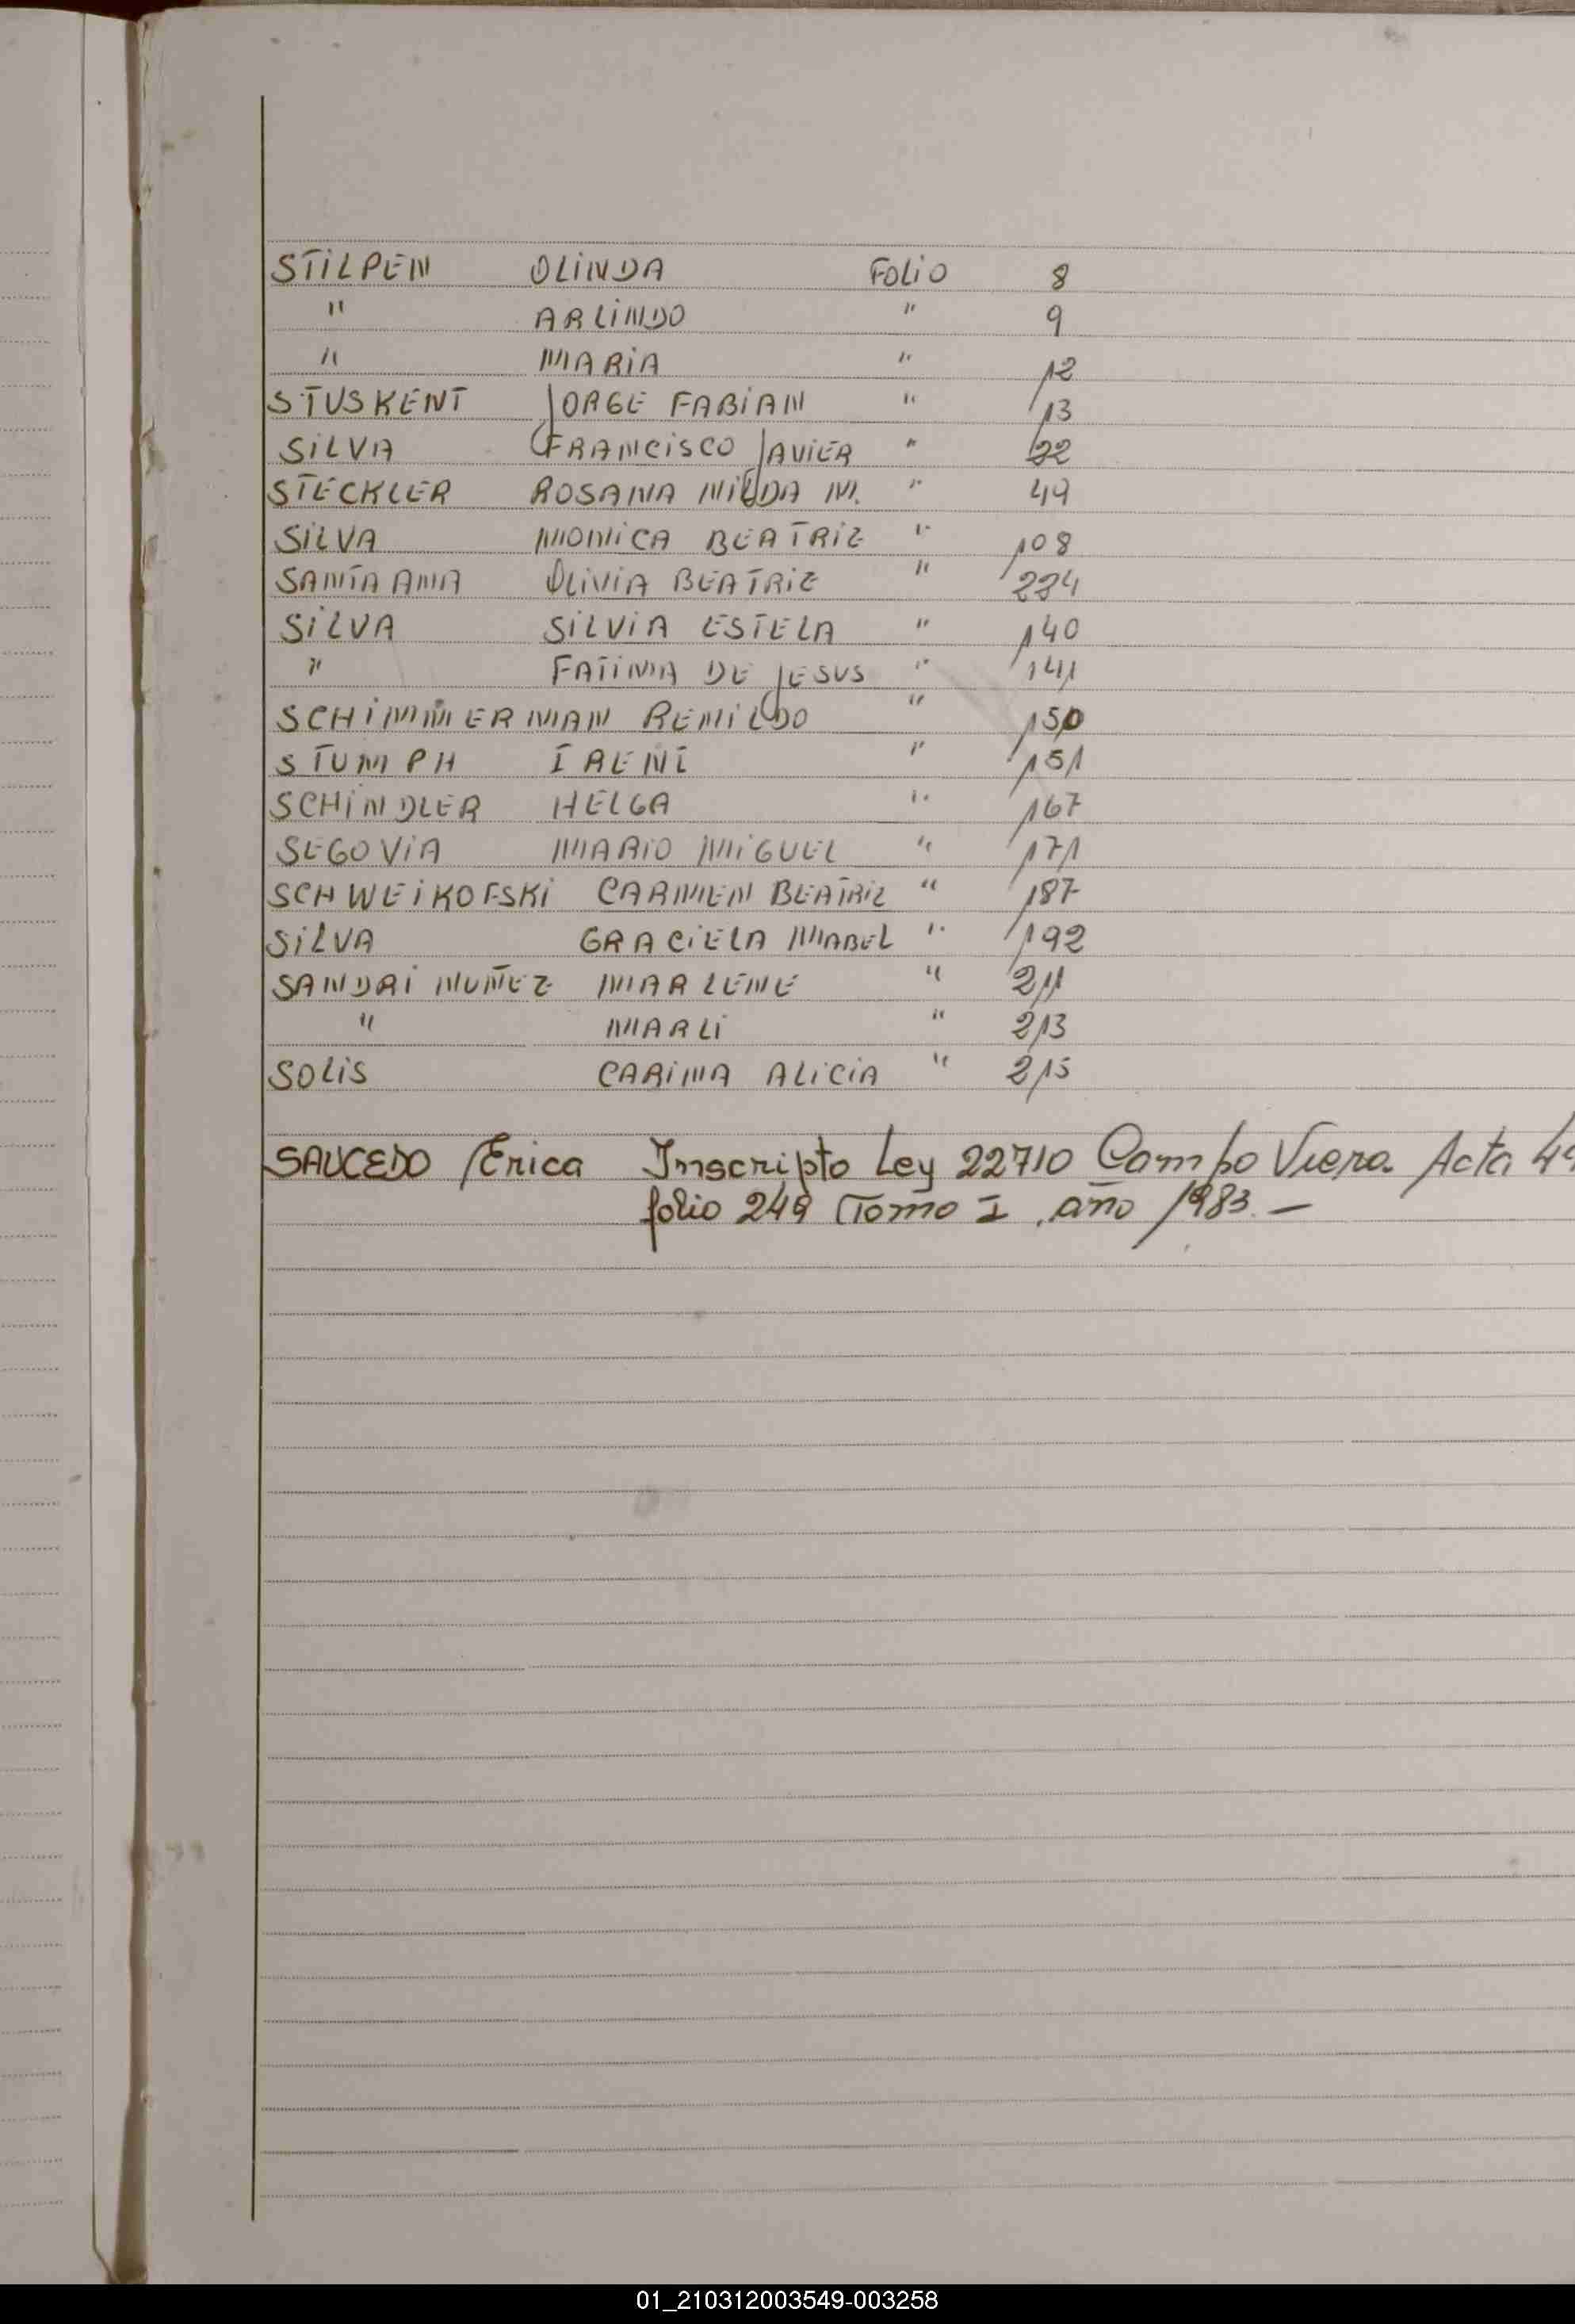 STILPEN OLINDA FOLIO 8
" ARLINDO " 9
" MARIA " 12
STUSKENT JORGE FABIAN " 13
SILVA FRANCISCO JAVIER " 22
STECKLER ROSANA NILDA M. " 49
SILVA MONICA BEATRIZ " 108
SANTA ANA OLIVIA BEATRIZ " 224
SILVA SILVIA ESTELA " 140
" FATIMA DE JESUS " 141
SCHIMMERMAN REMILDO " 150
STUMPH IRENE " 151
SCHINDLER HELGA " 167
SEGOVIA MARIO MIGUEL " 171
SCHWEIKOFSKI CARMEN BEATRIZ " 187
SILVA GRACIELA MABEL " 192
SANDRI MUÑEZ MARLENE " 211
" MARLI " 213
SOLIS CARINA ALICIA " 215
SAUCEDO Erica Inscripto Ley 22710 Campo Viera Acta
folio 249 Tomo I, año 1983.—
01_210312003549-003258